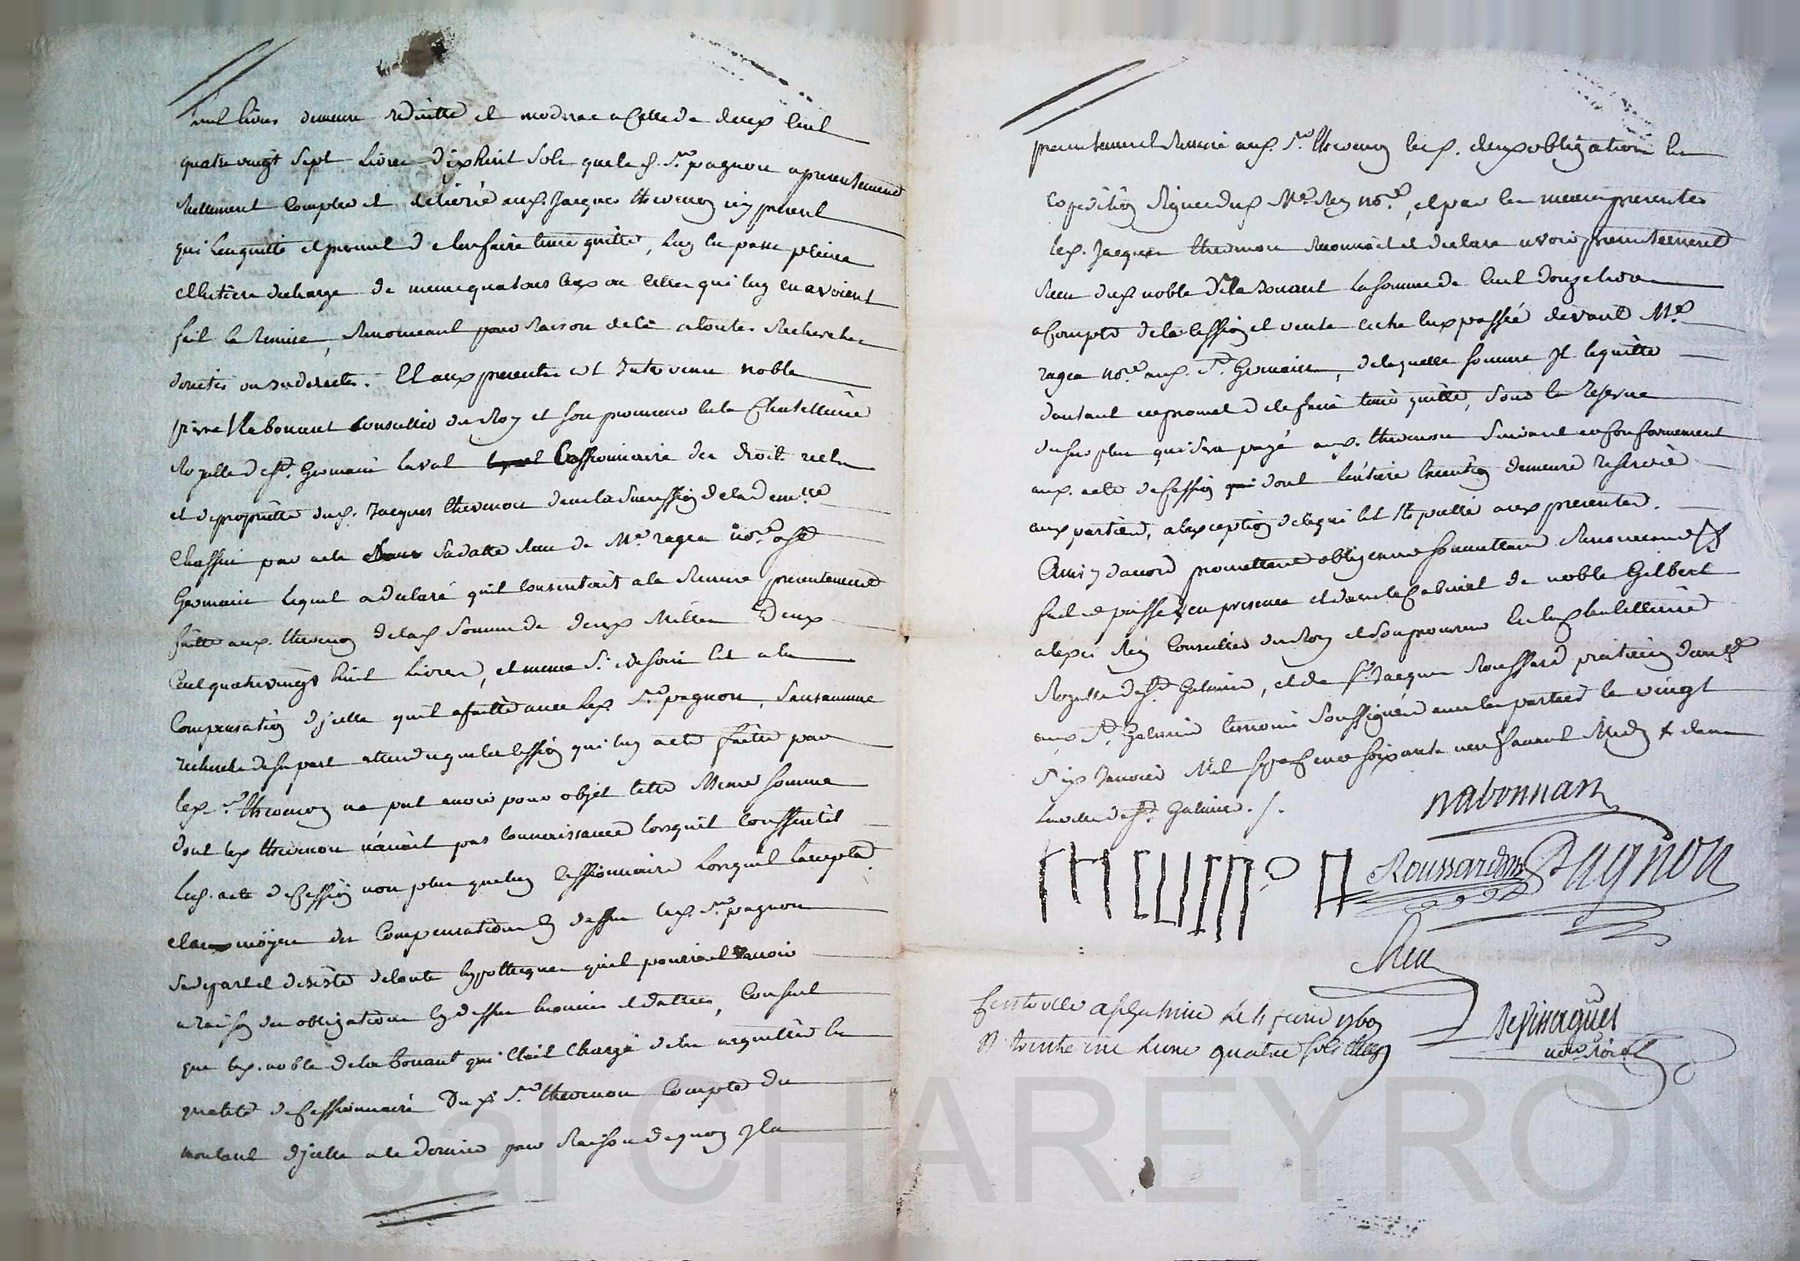 cent livres demeure reduitte et moderée a Celle de deux Cent
quatre vingt Sept Livres dixhuit Sols que le d. Sr. pagnon a presentement
reellement Compté et delivré aud. Jacques thevenon icy present
qui l'en quitte et promet d'elen faire tenir quitte, Luy en passe pleine
et Entiere decharge de meme qua tous ceux ou celles qui luy en avoient
fait la remise, Renonceant pour Raison de ce a toutes Recherches
directes ou indirectes. Et aux presentes est Intervenu noble
pierre Nabonnant Conseiller du Roy et Son procureur en la Chatellenie
Royalle de St. Germain laval Cessionnaire des droits
et de propriété dud. Jacques thevenon dans la Succession de la demlle
Chassin par acte Sadatte Reçu de Me. ragea nore. a St
Germain Lequel a declaré qu'il Consentoit a la Remise presentement
faitte aud. thevenon de lad. Somme de deux Mille deux
Cent quatrevingt huit Livres, et meme Si besoin Est a la
Compensation d'icelle qu'il a faitte avec led. Sr. pagnon, Sans aucune
recherche de Sa part attendu que la Cession qui luy a eté faitte par
led. Sr. thevenon na put avoir pour objet Cette Meme Somme
dont led. thevenon n'avoit pas Connoissance lorsquil Consentit
Led. acte de Cession non plus que led. Cessionnaire Lorsquil l'accepta
et au moyen des Compensations Cy dessus led. Sr. pagnon
Se depart et desiste de toute hypotheque quil pourroit avoir
a raison des obligations Cy dessus Enoncées et dattées, Consent
que led. noble de la bonant qui Etoit Chargé de les acquitter En
qualité de Cessionnaire Du d. Sr. thevenon Compte du
montant d'icelle a ce dernier pour Raison de quoy Il a
presentement Remis aud. Sr. thevenon lesd. deux obligations En
Expedition Signée dud. Me. Rey nore., et par les memes presentes
Led. Jacques thevenon Reconnoit et declare avoir presentement
Reçu dud. noble De la bonant La Somme de Cent douze livres
a Compte de la Cession et vente Entre Eux passée devant Me.
ragea nore. aud. St. Germain, de laquelle Somme Il le quitte
d'autant et promet de le faire tenir quitte, Sous la Reserve
du Surplus qui Sera payé aud. thevenon Suivant et Conformement
aud. acte de Cession dont l'entiere Execution demeure reservée
aux parties, a l'exception de ce qui Est Stipullé aux presentes.
Ainsy d'accord promettant obligeant Soumettant Renonceant &
fait et passé en presence et dans le Cabinet de noble Gilbert
alexis Rey Conseiller du Roy et Son procureur En la Chatellenie
Royalle de St. Galmier, et de Sr. Jacques Roussard praticien dudt
aud. St. Galmier temoins Soussignés avec les parties le vingt
Six Janvier Mil Sept Cent Soixante neuf avant Midy & dans
la ville de St. Galmier. /.
nabonnant
Roussard
Pagnon
Rey
Controllé a St Galmier Le 4 fevrier 1769
R trente une Livres quatre Sols
Pascal CHAREYRON